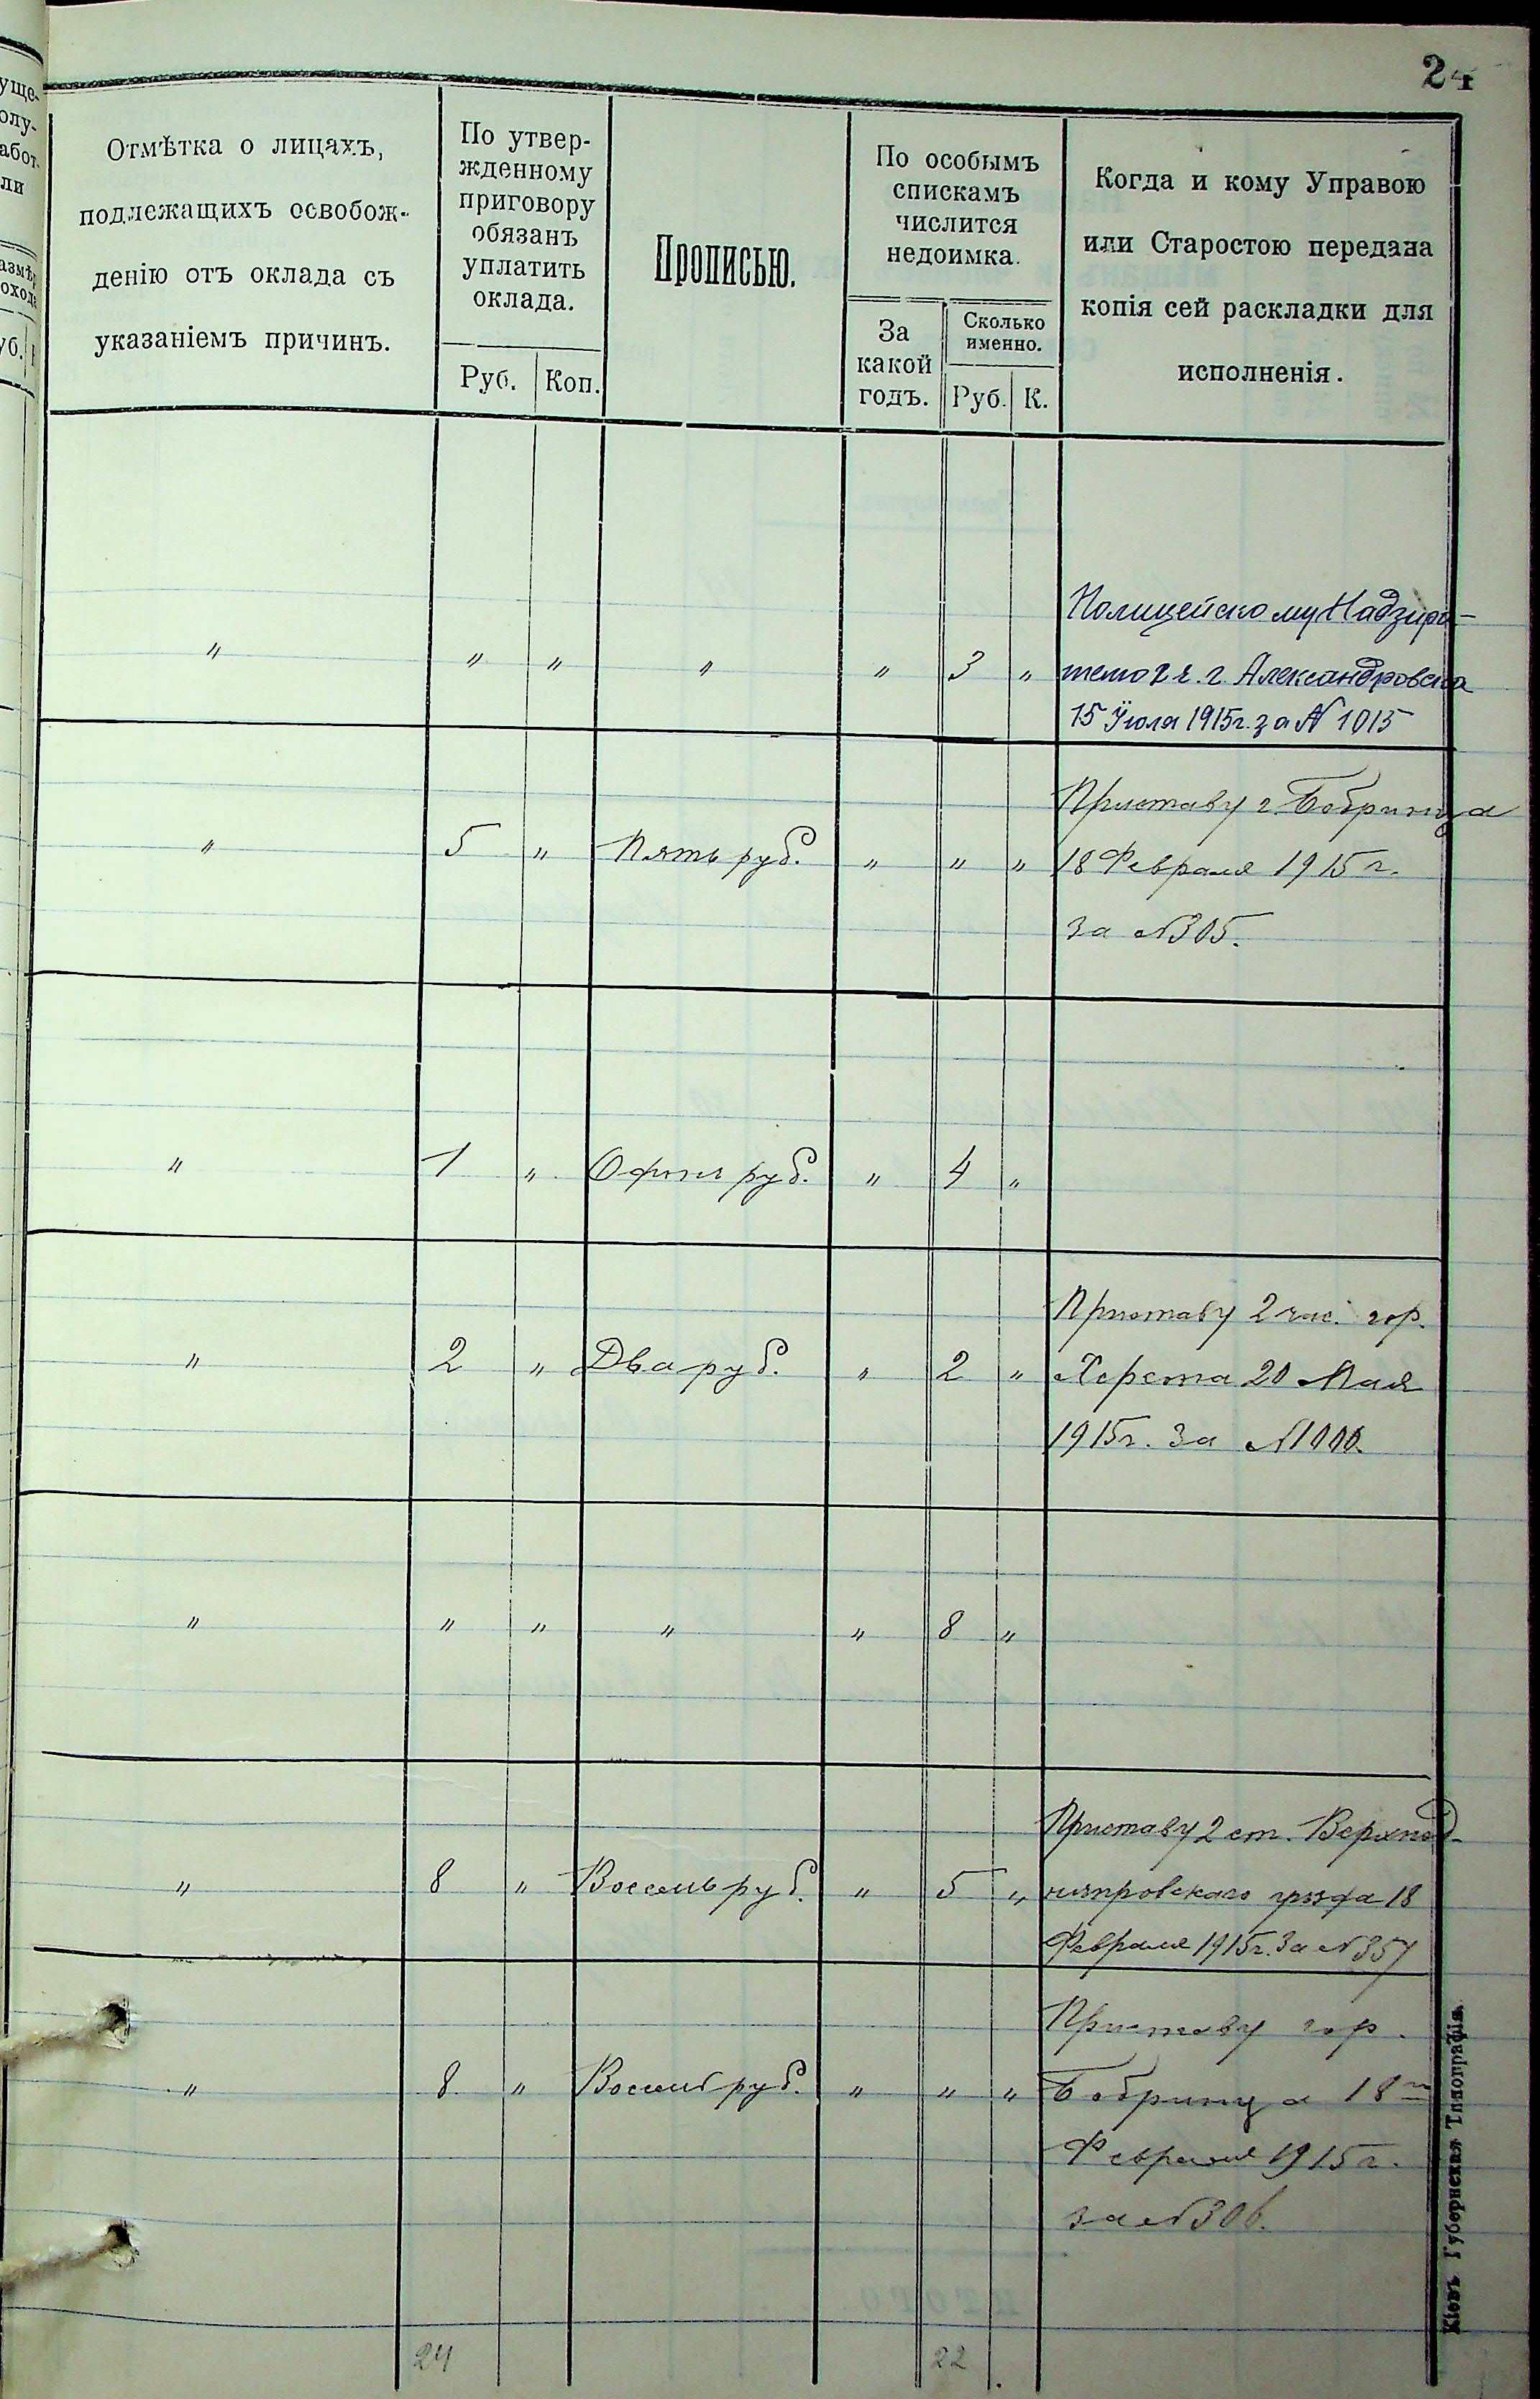 24
уще-
олу-
абот.
ли
азмѣр
охода
уб.
Отмѣтка о лицахъ,
подлежащихъ освобож-
денію отъ оклада съ
указаніемъ причинъ.
По утвер-
жденному
приговору
обязанъ
уплатить
оклада.
Руб. Коп.
Прописью.
По особымъ
спискамъ
числится
недоимка.
За
какой
годъ.
Сколько
именно.
Руб. К.
Когда и кому Управою
или Старостою передана
копія сей раскладки для
исполненія.
Полицейскому Надзира-
" " " " " 3 " телю 2 ч. г. Александровска
15 Іюля 1915г. за № 1015
Приставу г. Бобринца
" 5 " Пять руб. " " " 18 Февраля 1915 г.
за № 305.
" 1 " Одинъ руб. " 4 "
Приставу 2 час. гор.
" 2 " Два руб. " 2 " Херсона 20 Мая
1915г. за №
" " " " " 8 "
Приставу 2 ст. Верхнед-
" 8 " Восемь руб. " 5 " нипровскаго уѣзда 18
Февраля 1915г. За № 357
Приставу гор.
" 8 " Восемь руб. " " " Бобринца 18го
Февраля 1915 г.
за № 306.
24 22
Кіевъ Губернская Типографія.